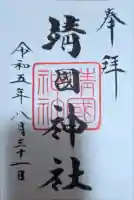 奉拝
靖國神社
令和五年八月三十一日
靖國神社